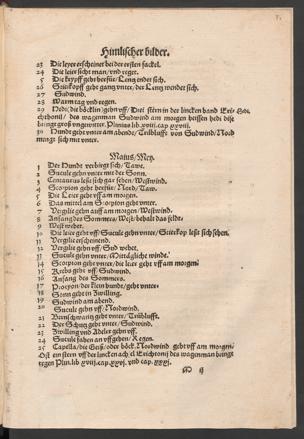 Himlischer bilder.
23 Die leyer erscheinet bei der ersten fackel.
24 Die leier sicht man/vnd reget.
25 Die krypff geht herfür/Lentz endet sich.
26 geht gantz vnter/der Lentz wendet sich.
27 Sudwind.
28 Warm tag vnd regen.
29 Hedi/die böcklin/geht vff/Drei stern in der lincken hand Eri-
chthonij/des wagenman Sudwind am morgen heissen hedi die
bringe groß vngewitter. Plinius lib. xviij. cap. xxviij.
30 Hundt geht vnter am abende/Trüblufft von Sudwind/Nord
mengt sich mit vnter.
Maius/Mey.
1 Der Hundt verbirgt sich/Tawe.
2 Sucule gehn vnter mit der Sonn.
3 Centaurus lest sich gar sehen/Westwind.
4 Scorpion geht herfür/Nord/Taw.
5 Die Leier geht vff am morgen.
6 Das mittel am Scorpion geht vnter.
7 Vergilie gehn auff am morgen/Westwind.
8 Anfang des Sommers/West behalt das felde.
9 West wehet.
10 Die leier geht vff/Sucule gehn vnter/ lest sich sehen.
11 Vergilie erscheinend.
12 Vergilie gehn vff/Sud wehet.
13 Sucule gehn vnter/Mittägliche winde.
14 Scorpion geht vnter/die leier geht vff am morgen.
15 Krebs geht vff/Sudwind.
16 Anfang des Sommers.
17 Procyon/der klein hunde/geht vnter.
18 Sonn geht in Zwilling.
19 Sudwind am abend.
20 Sucule gehn vff/Nordwind.
21 geht vnter/Trüblufft.
22 Der Schütz geht vnter/Sudwind.
23 Zwilling vnd Adeler gehn vff.
24 Sucule haben an vffgehen/Regen.
25 Capella/die Geiß/oder böck. Nordwind geht vff am morgen/
Ost ein stern vff der lincken achsel Erichtonij des wagenman bringt
regen Plin. lib xviij. cap. xxvj. vnd cap. xxxj.
ij